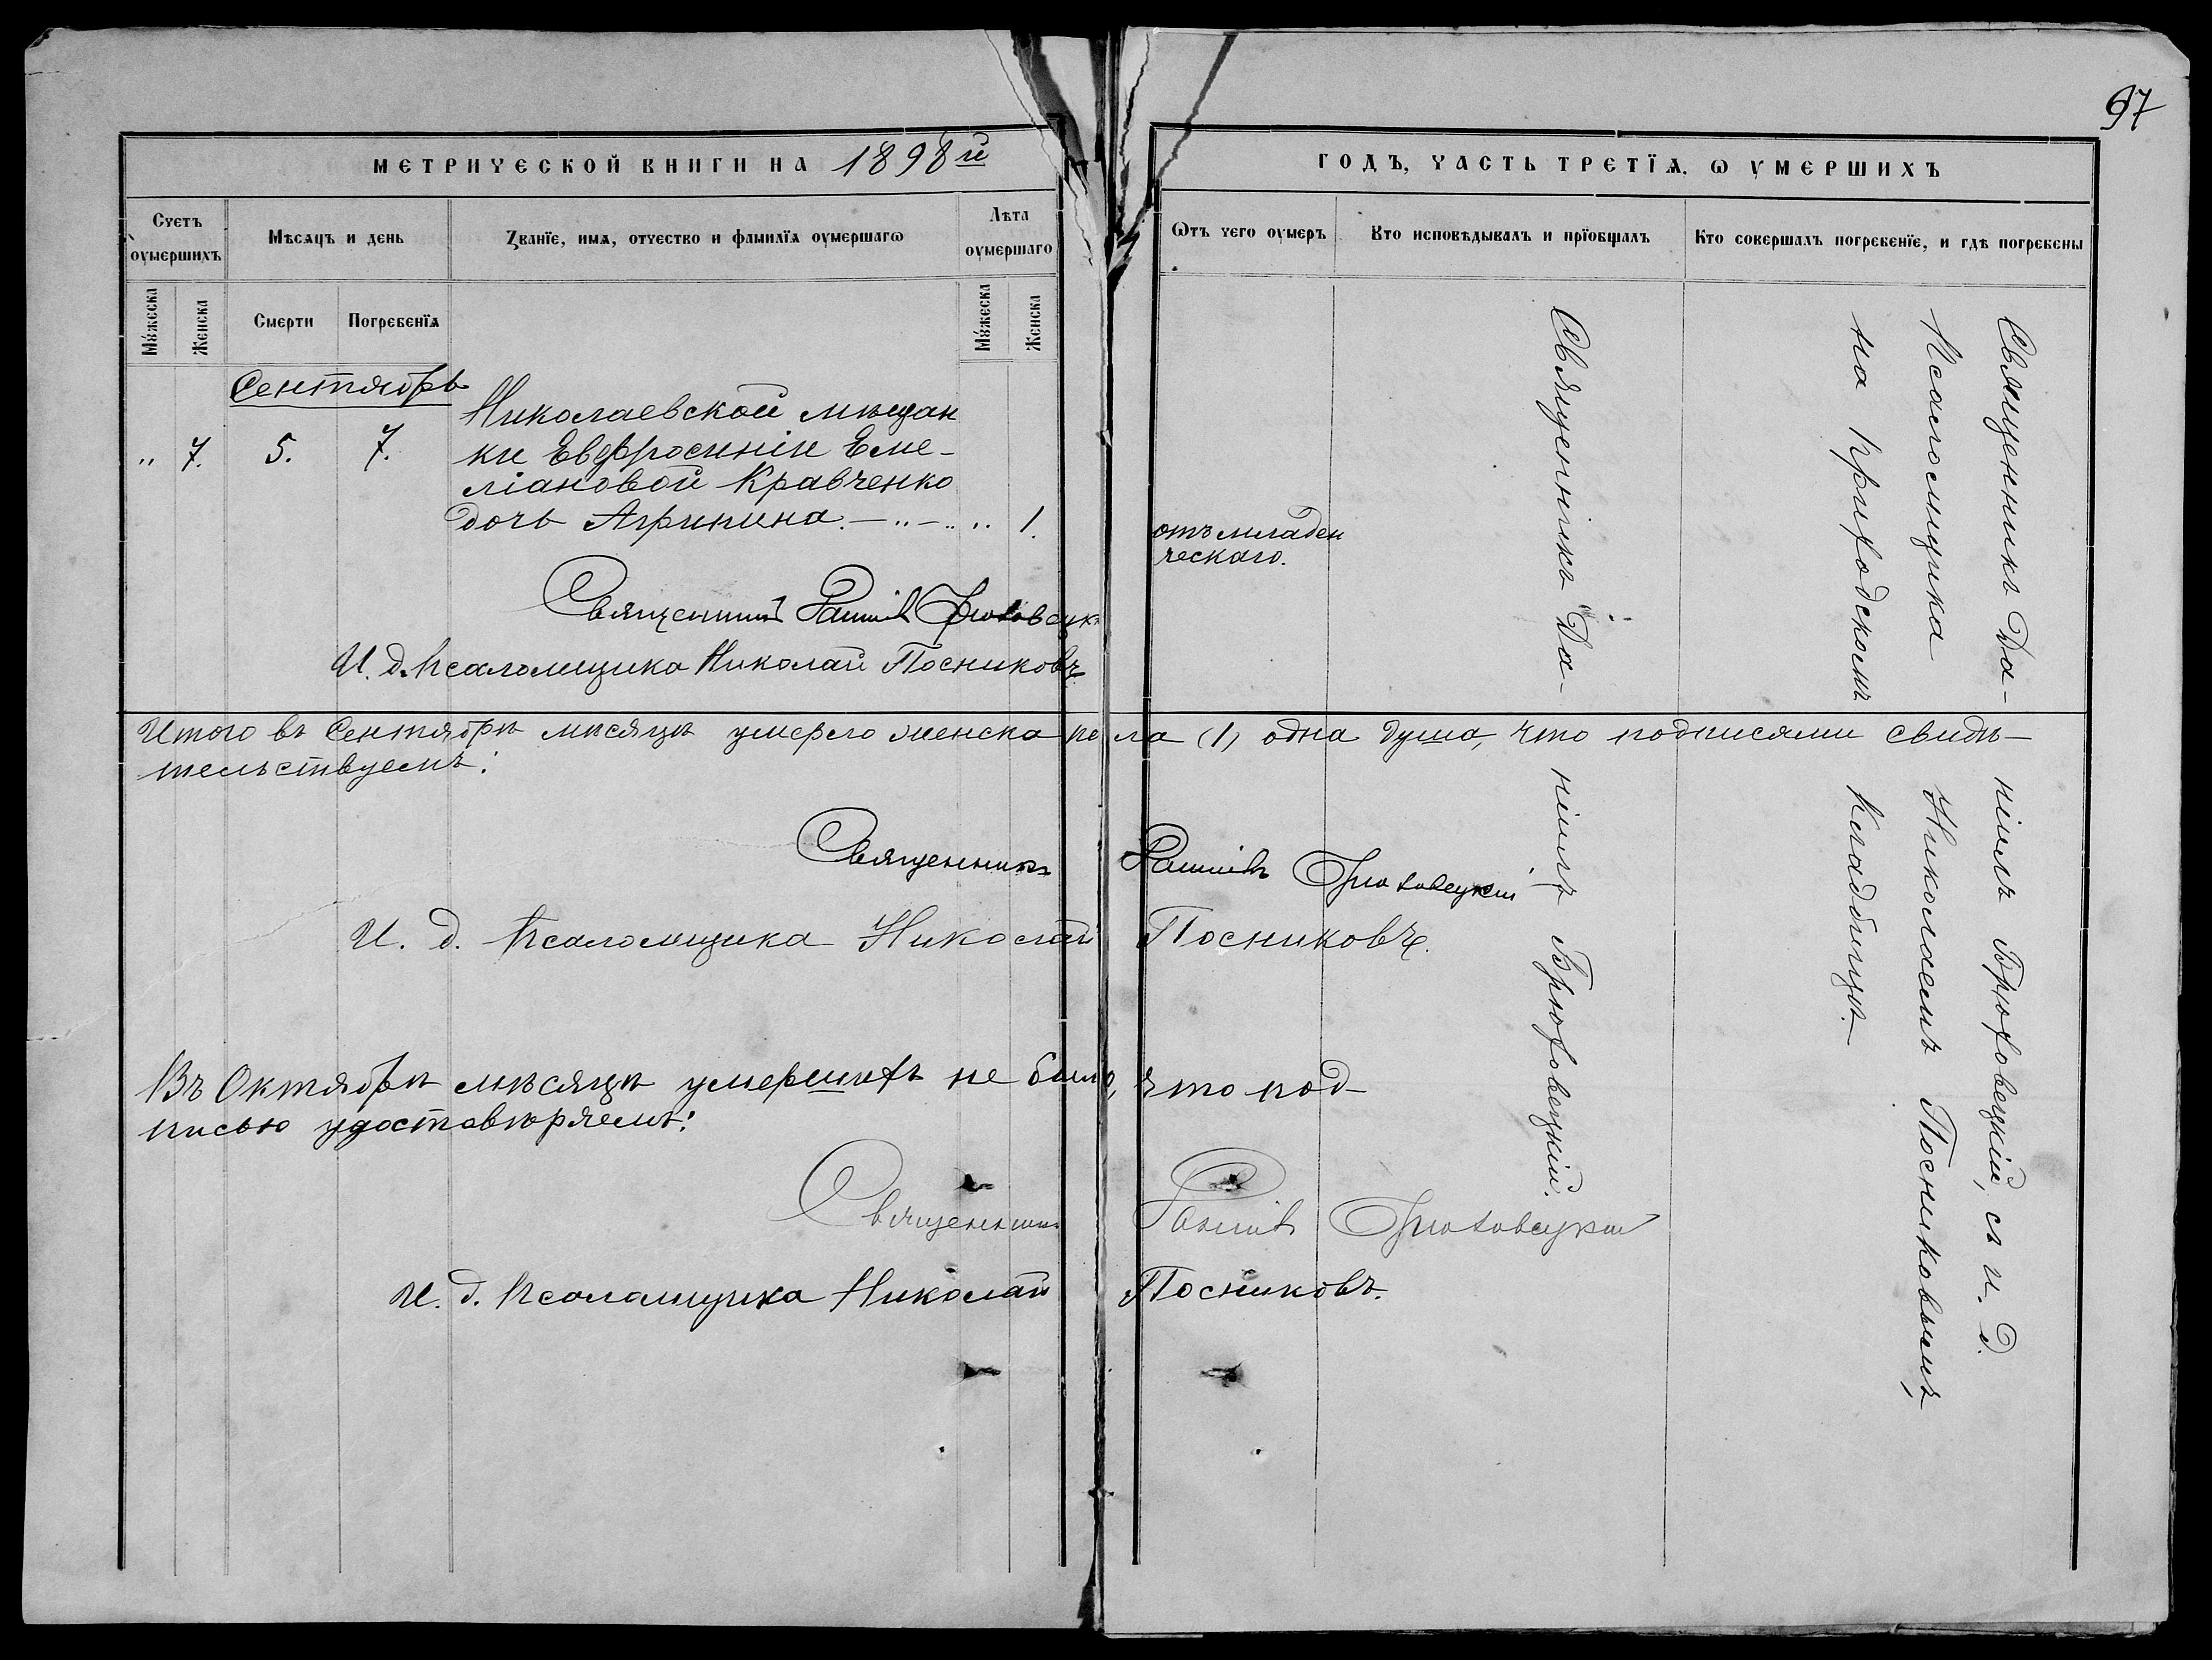 97
МЕТРИЧЕСКОЙ КНИГИ НА 1898й ГОДЪ, ЧАСТЬ ТРЕТЇѦ. Ѡ УМЕРШИХЪ
Счетъ оумершихъ
Мѣсѧцъ и день
Званїе, имѧ, отчество и фамилїѧ оумершагѡ
Лѣта оумершаго
Ѿтъ чего оумеръ
Кто исповѣдывалъ и прїобщалъ
Кто совершалъ погребенїе, и гдѣ погребены
Мꙋжеска
Женска
Смерти
Погребенїѧ
Мꙋжеска
Женска
Сентябрь
Николаевской мѣщан
" 7. 5. 7. ки Евфросиніи Еме-
ліановой Кравченко
дочь Агрипина. — " — " " 1.
отъ младен
ческаго.
Священникъ Да-
ніилъ Брюховецкій.
Священникъ Да-
ніилъ Брюховецкій, съ и. д.
Псаломщика
Николаемъ Посниковымъ,
на приходскомъ
кладбищѣ.
Священникъ Даніилъ Брюховецк
И. д. Псаломщика Николай Посниковъ
Итого въ Сентябрѣ мѣсяцѣ умерло женска пола (1) одна душа, что подписями свидѣ-
тельствуемъ:
Священникъ Даніилъ Брюховецкій
И. д. Псаломщика Николай Посниковъ.
Въ Октябрѣ мѣсяцѣ умершихъ не было, что под-
писью удостовѣряемъ:
Священникъ Даніилъ Брюховецкій
И. д. Псаломщика Николай Посниковъ.